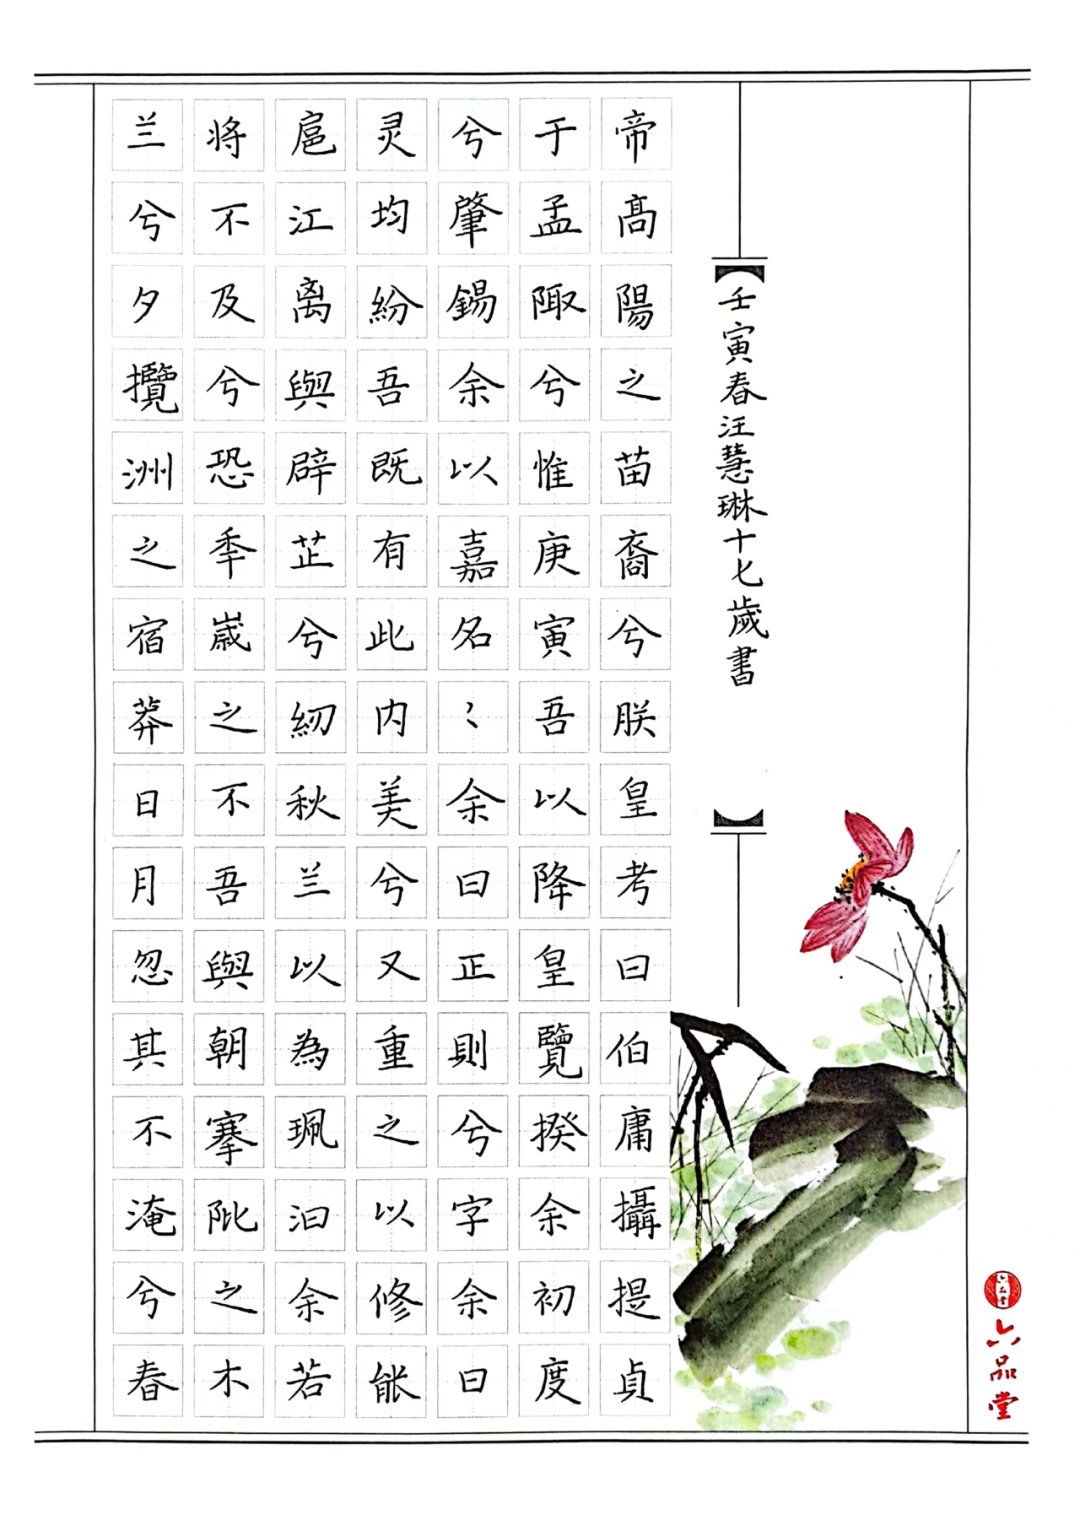 壬寅春汪慧琳十七歲書
帝髙陽之苗裔兮朕皇考曰伯庸攝提貞
于孟陬兮惟庚寅吾以降皇覽揆余初度
兮肇錫余以嘉名〻余曰正則兮字余曰
灵均紛吾既有此内美兮又重之以修能
扈江离與辟芷兮紉秋兰以為珮汩余若
将不及兮恐秊嵗之不吾與朝搴阰之木
兰兮夕攬洲之宿莽日月忽其不淹兮春
六品堂